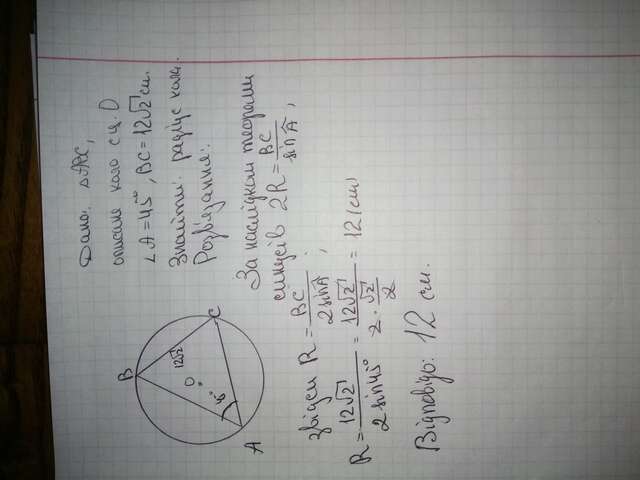 Дано: △ABC,
описане коло з ц. O
∠A=45°, BC=12√2 см.
Знайти: радіус кола.
Розв'язання:
B
12√2
O
45°
A
C
За наслідком теореми
синусів 2R = BC / sin A,
звідси R = BC / 2sin A;
R = 12√2 / 2 sin45° = 12√2 / (2 · √2/2) = 12 (см)
Відповідь: 12 см.